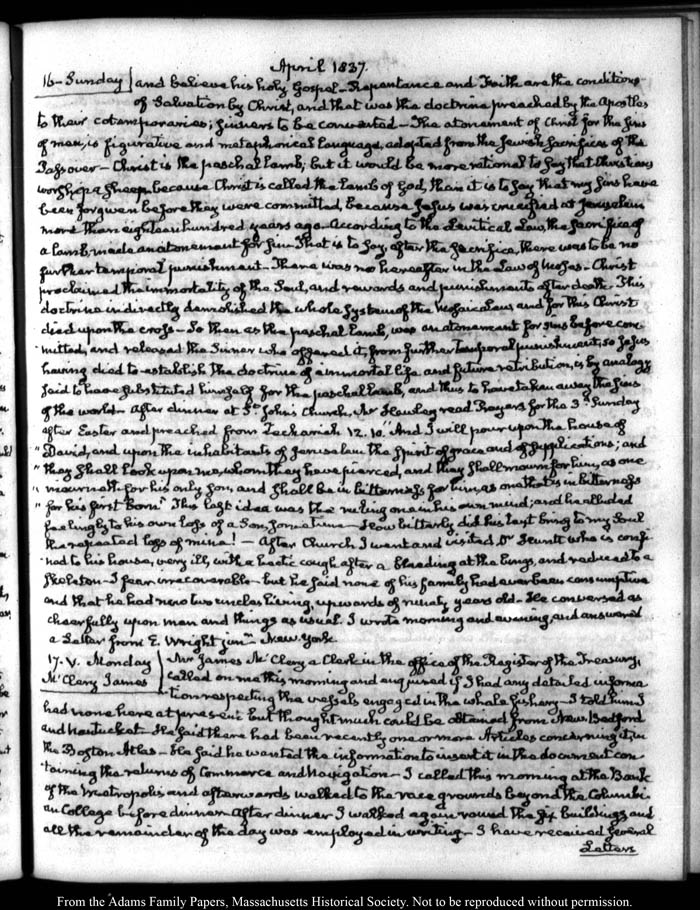 April 1837.
16 - Sunday } and believe his holy Gospel - Repentance and Faith are the conditions
of Salvation by Christ, and that was the doctrine preached by the Apostles
to their cotemporaries; sinners to be converted - The atonement of Christ for the sins
of man, is figurative and metaphorical language, adopted from the Jewish sacrifices of the
Passover - Christ is the paschal lamb; but it would be more rational to say that Christians
worship a sheep because Christ is called the lamb of God, than it is to say that my sins have
been forgiven before they were committed, because Jesus was crucified at Jerusalem
more than eighteen hundred years ago. According to the Levitical Law, the sacrifice of
a lamb made an atonement for sin - That is to say, after the sacrifice, there was to be no
further temporal punishment - There was no hereafter in the Law of Moses - Christ
proclaimed the immortality of the Soul, and rewards and punishments after death. This
doctrine indirectly demolished the whole system of the Mosaic Law, and for this Christ
died upon the cross - So then as the paschal lamb, was an atonement for sins before com-
mitted, and released the sinner who offered it, from further temporal punishment, so Jesus
having died to establish the doctrine of immortal life and future retribution, is by analogy
said to have substituted himself for the paschal lamb, and thus to have taken away the sins
of the world - After dinner at St. John's Church, Mr Hawley read Prayers for the 3d. Sunday
after Easter and preached from Zechariah 12. 10. "And I will pour upon the house of
"David, and upon the inhabitants of Jerusalem the Spirit of grace and of Supplications; and
"they shall look upon me, whom they have pierced, and they shall mourn for him, as one
"mourneth for his only son, and shall be in bitterness for him, as one that is in bitterness
"for his first born" This last idea was the ruling one in his own mind; and he alluded
feelingly to his own loss of a Son, sometime - How bitterly did his text bring to my Soul
the repeated loss of mine! - After Church I went and visited Dr Huntt who is confi-
ned to his house, very ill, with a hectic cough after a bleeding at the lungs, and reduced to a
skeleton - I fear irrecoverable - but he said none of his family had ever been consumptive
and that he had now two uncles living, upwards of ninety years old - He conversed as
cheerfully upon men and things as usual. I wrote morning and evening, and answered
a Letter from E. Wright junr. New-York
17. V. Monday } Mr James McClery a Clerk in the office of the Register of the Treasury,
McClery James } called on me this morning and enquired if I had any detailed informa
tion respecting the vessels engaged in the whale fishery - I told him I
had none here at present but thought much could be obtained from New Bedford
and Nantucket - He said there had been recently one or more Articles concerning it, in
the Boston Atlas - He said he wanted the information to insert it in the document con
taining the returns of Commerce and Navigation - I called this morning at the Bank
of the Metropolis and afterwards walked to the race grounds beyond the Columbi-
an College before dinner. After dinner I walked again round the Six buildings, and
all the remainder of the day was employed in writing - I have received several
Letters
From the Adams Family Papers, Massachusetts Historical Society. Not to be reproduced without permission.